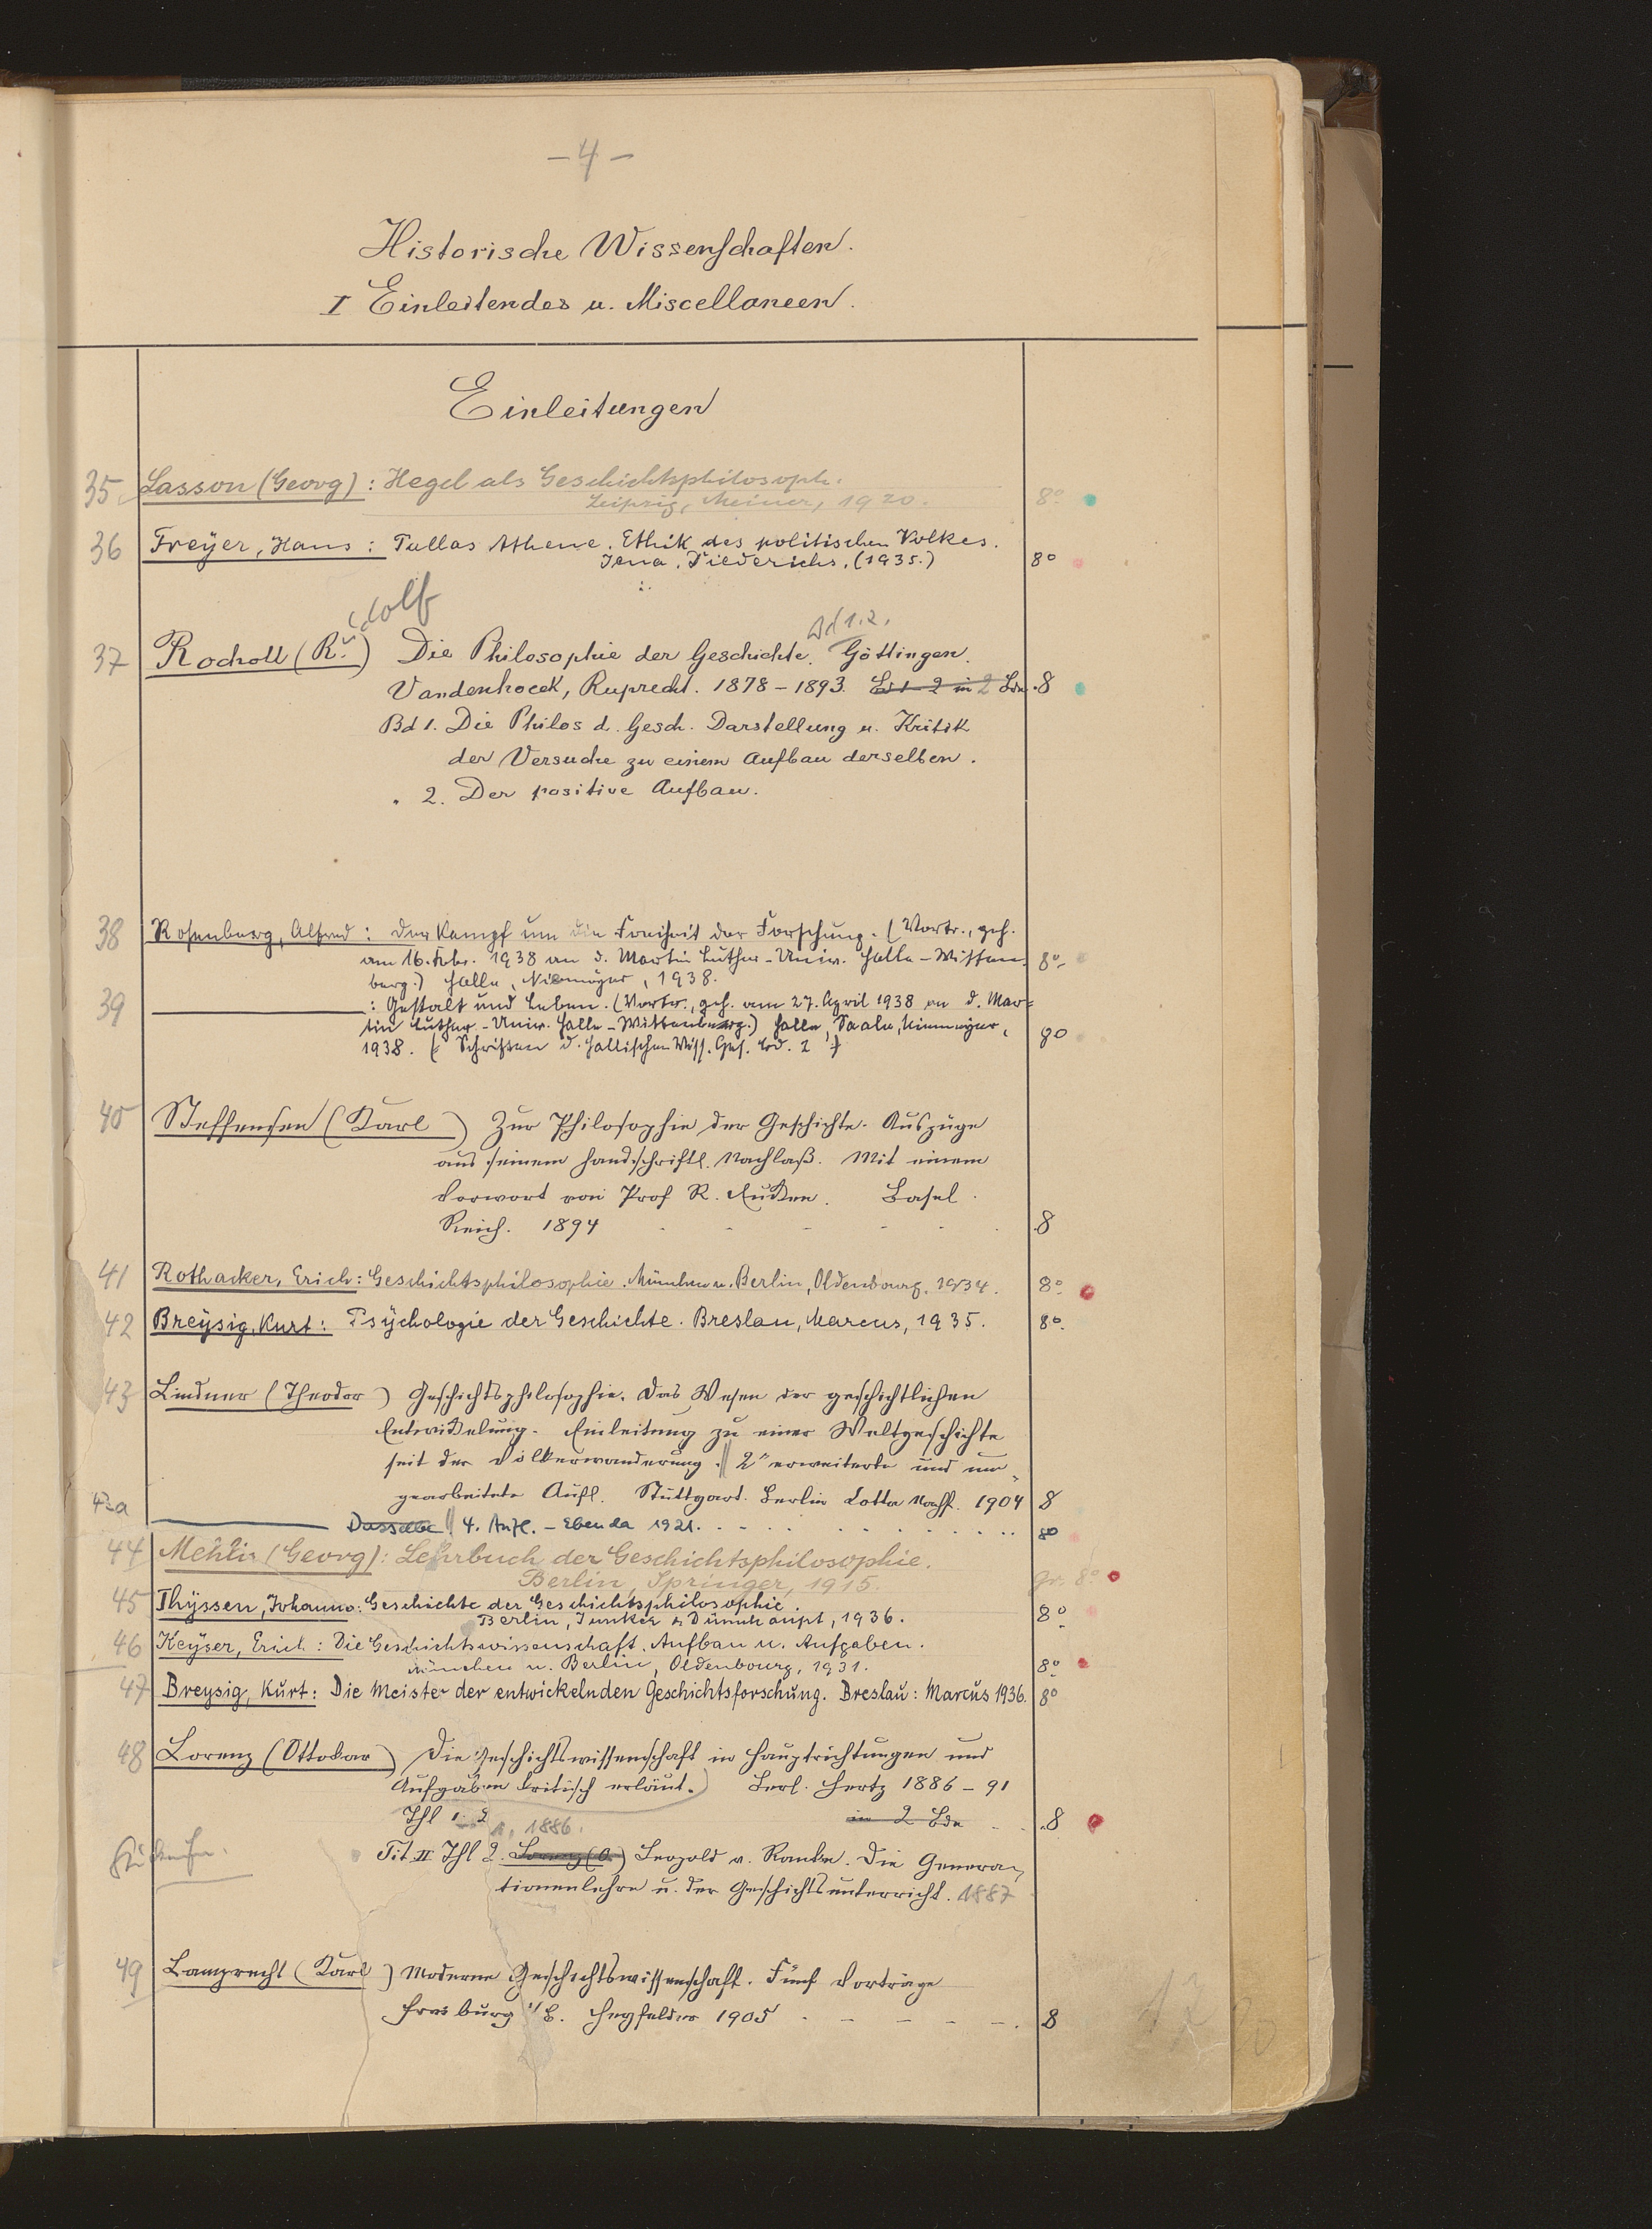 – 4 –
Historische Wissenschaften.
I Einleitendes u. Miscellaneen.
Einleitungen
35 Lasson (Georg): Hegel als Geschichtsphilosoph.
Leipzig, Meiner, 1920. 8°
36 Freyer, Hans: Pallas Athene. Ethik des politischen Volkes.
Jena. Diederichs. (1935.) 8°
dolf
Bd 1.2.
37 Rocholl (R.) Die Philosophie der Geschichte. Göttingen.
Vandenhoeck, Ruprecht. 1878 – 1893. Bd 1–2 in 2 Bdn. 8
Bd 1. Die Philos d. Gesch. Darstellung u. Kritik
der Versuche zu einem Aufbau derselben.
" 2. Der positive Aufbau.
38 Rosenberg, Alfred: Der Kampf um die Freiheit der Forschung. (Vortr., geh.
am 16. Febr. 1938 an d. Martin Luther-Univ. Halle-Witten- 8°
berg.) Halle, Niemeyer, 1938.
39 : Gestalt und Leben. (Vortr., geh. am 27. April 1938 an d. Mar=
tin Luther-Univ. Halle-Wittenberg.) Halle, Saale, Niemeyer, 8°
1938. (Schriften d. Hallischen Wiss. Ges. Bd. 2)
40 Steffensen (Karl) Zur Philosophie der Geschichte. Auszüge
aus seinem handschriftl. Nachlaß. Mit einem
Vorwort von Prof R. Eucken. Basel.
Reich. 1894 8
41 Rothacker, Erich: Geschichtsphilosophie. München u. Berlin, Oldenbourg, 1934. 8°
42 Breysig, Kurt: Psychologie der Geschichte. Breslau, Marcus, 1935. 8°.
43 Lindner (Theodor) Geschichtsphilosophie. Das Wesen der geschichtlichen
Entwickelung. Einleitung zu einer Weltgeschichte
seit der Völkerwanderung. || 2" erweiterte und um-
gearbeitete Aufl. Stuttgart. Berlin Cotta Nachf. 1904 8
43a Dasselbe || 4. Aufl. – Ebenda 1921. 8°
44 Mehlis (Georg): Lehrbuch der Geschichtsphilosophie.
Berlin, Springer, 1915. gr. 8°
45 Thyssen, Johannes: Geschichte der Geschichtsphilosophie.
Berlin, Junker & Dünnhaupt, 1936. 8°
46 Keyser, Erich: Die Geschichtswissenschaft. Aufbau u. Aufgaben.
München u. Berlin, Oldenbourg, 1931. 8°
47 Breysig, Kurt: Die Meister der entwickelnden Geschichtsforschung. Breslau: Marcus 1936. 8°
48 Lorenz (Ottokar) Die Geschichtswissenschaft in Hauptrichtungen und
Aufgaben kritisch erläut.) Berl. Hertz 1886 – 91
Thl 1. 2 in 2 Bdn 8
1, 1886.
Tit. II Thl 2. Lorenz (O.) Leopold v. Ranke. Die Genera-
tionenlehre u. der Geschichtsunterricht. 1887
49 Lamprecht (Karl) Moderne Geschichtswissenschaft. Fünf Vorträge
Freiburg i/B. Heyfelder 1905 8